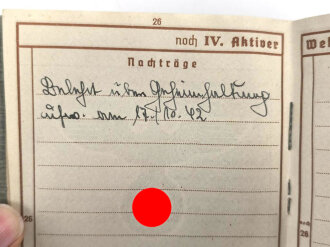 26
noch IV. Aktiver
Nachträge
Belehrt über Geheimhaltung
usw. am 17./10. 42
26
Wel